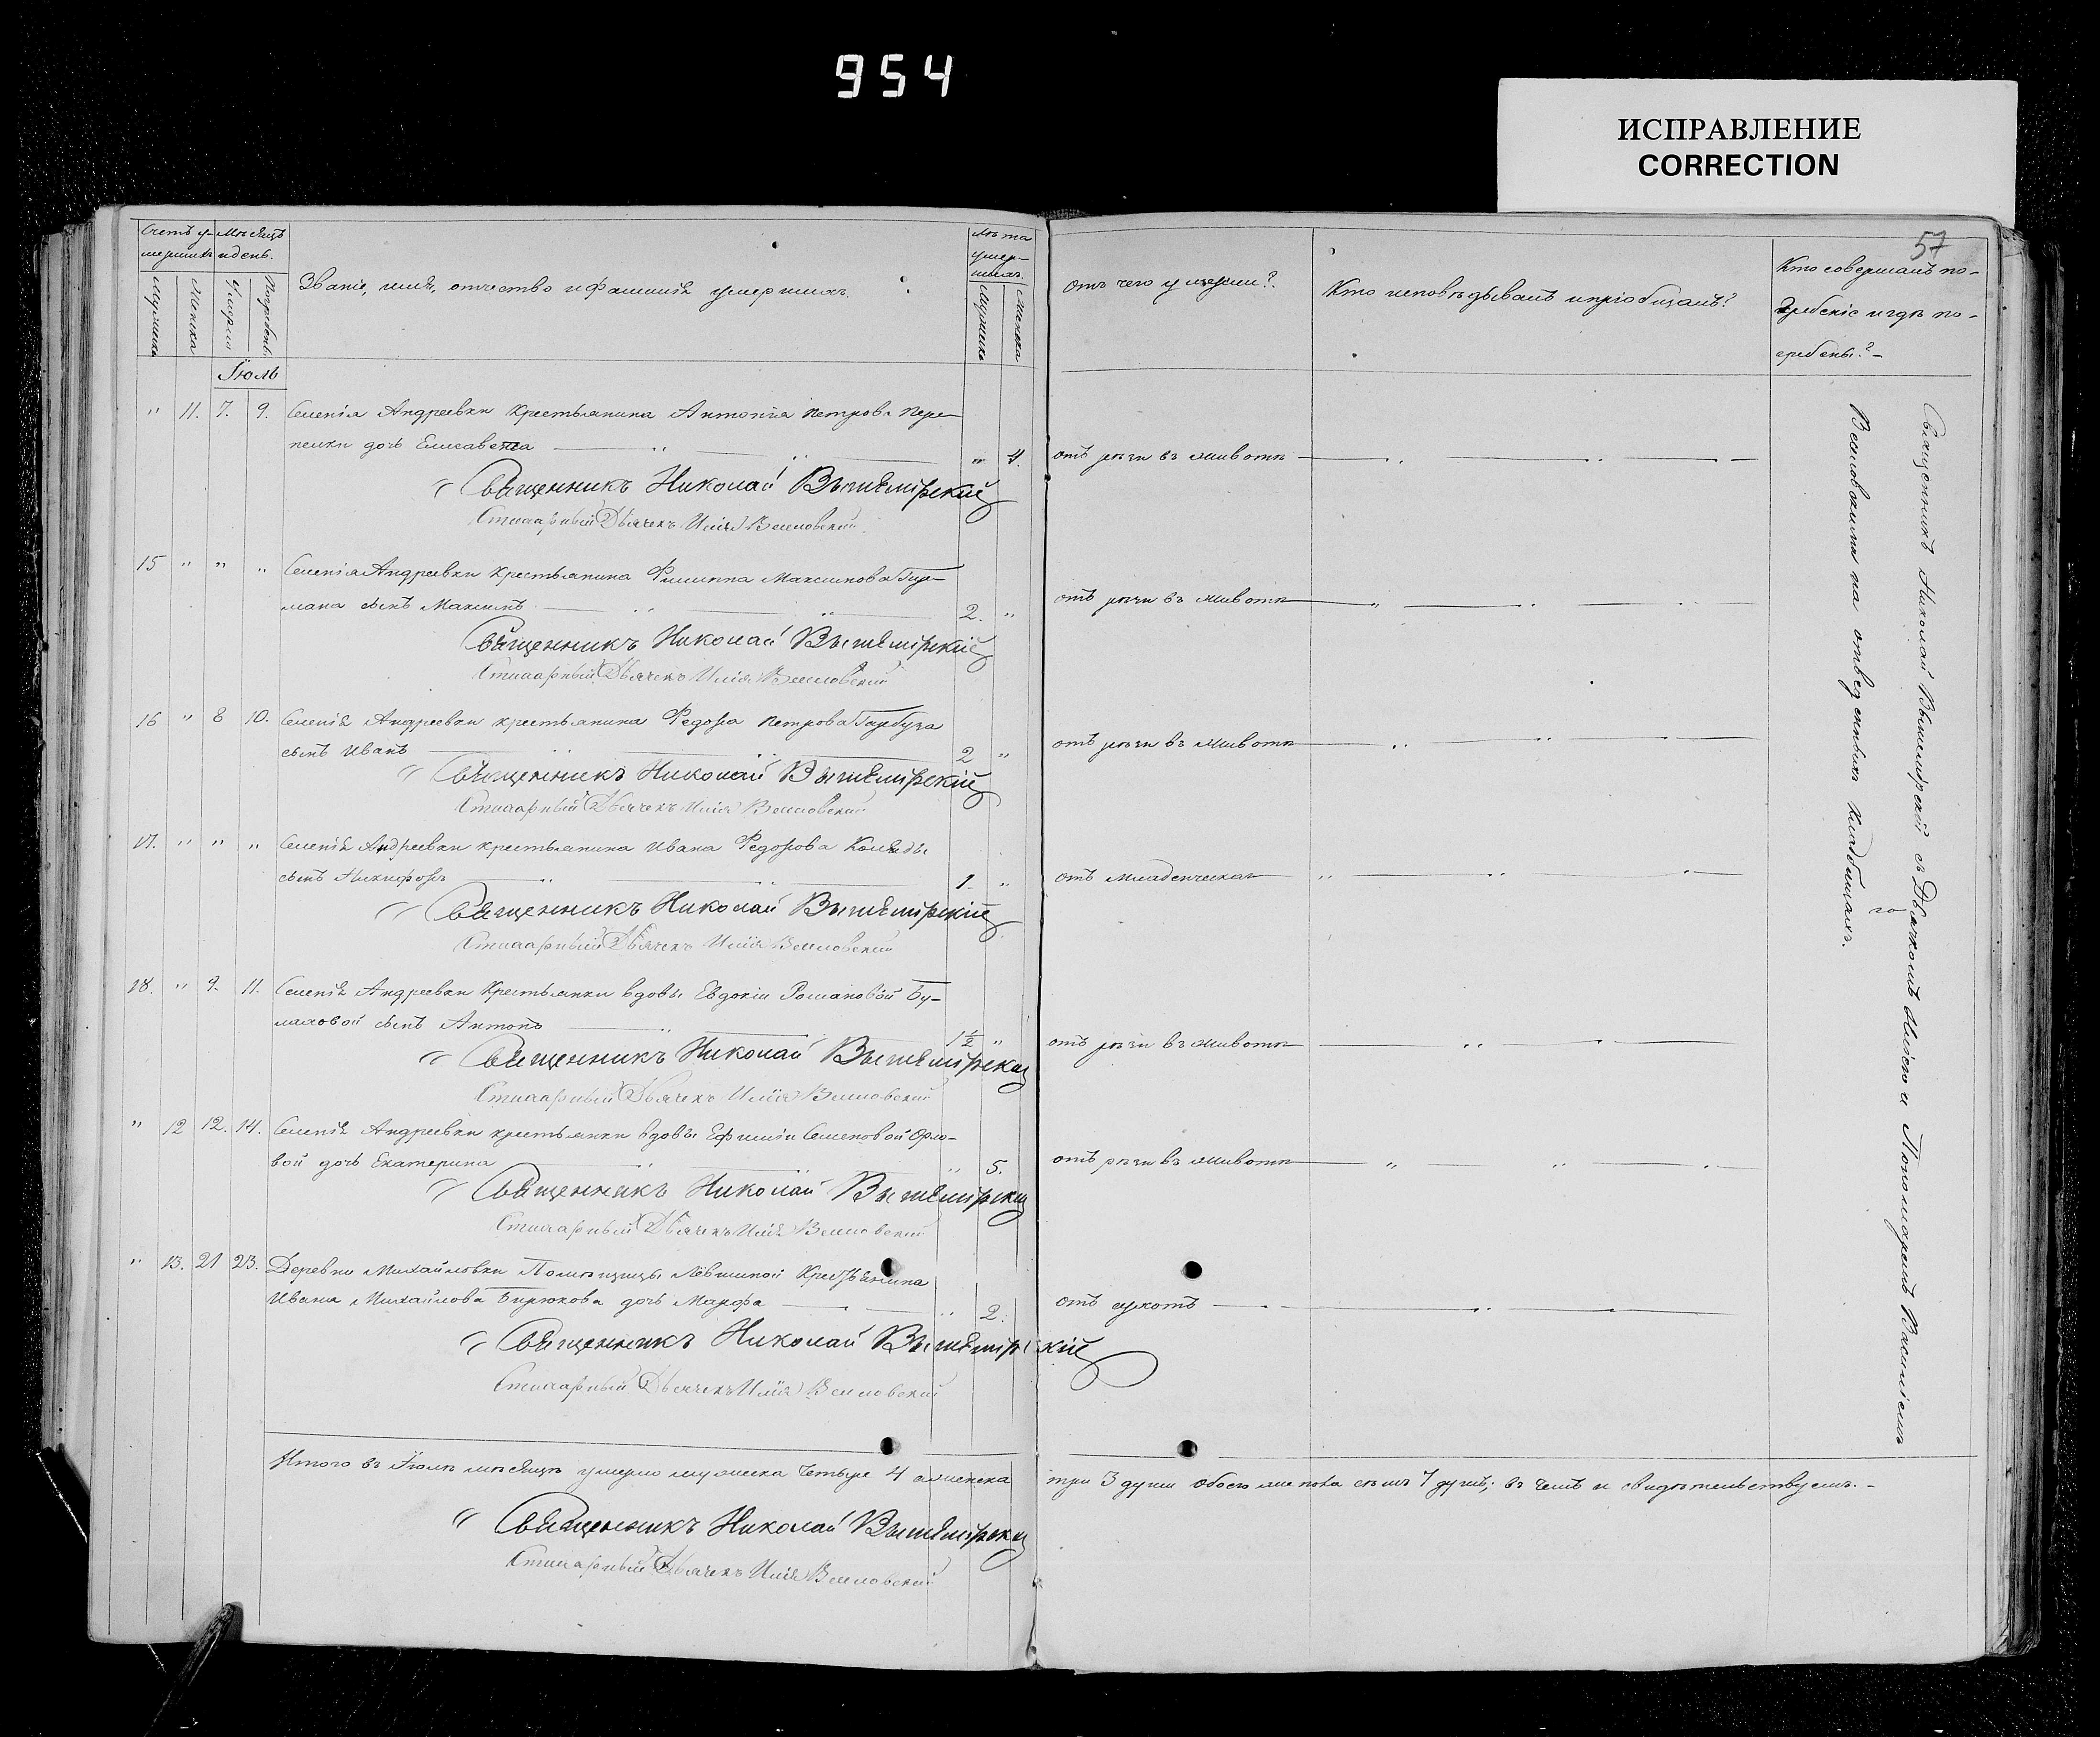 954
ИСПРАВЛЕНИЕ
CORRECTION
57
Счетъ у-
мершихъ
Мѣсяцъ
и день.
Мужеска
Женска
Умерли
Погребены
Званіе, имя, отчество и фамилія умершихъ.
Лѣта
умер-
шихъ
Мужеска
Женска
отъ чего умерли?
Кто исповѣдывалъ и пріобщалъ?
Кто совершалъ по-
гребеніе и гдѣ по-
гребены?
Іюль
" 11. 7. 9. Селенія Андреевки крестьянина Антонія Петрова Пере-
пелки дочь Елисавета " 4. отъ рѣзи въ животѣ
Священникъ Николай Вышемірскій
Стихарный Дьячекъ Илія Велловскій
15 " " " Селенія Андреевки крестьянина Филиппа Максимова
мана сынъ Максимъ 2. " отъ рѣзи въ животѣ
Священникъ Николай Вышемірскій
Стихарный Дьячекъ Илія Велловскій
16 " 8 10. Селенія Андреевки крестьянина Федора Петрова Гарбуза
сынъ Иванъ 2 " отъ рѣзи въ животѣ
Священникъ Николай Вышемірскій
Стихарный Дьячекъ Илія Велловскій
17. " " " Селенія Андреевки крестьянина Ивана Федорова Коляды
сынъ Никифоръ 1. " отъ младенческаго
Священникъ Николай Вышемірскій
Стихарный Дьячекъ Илія Велловскій
18. " 9. 11. Селенія Андреевки крестьянки вдовы Евдокіи Романовой Бу-
лаховой сынъ Антонъ 1½ " отъ рѣзи въ животѣ
Священникъ Николай Вышемірскій
Стихарный Дьячекъ Илія Велловскій
" 12 12. 14. Селенія Андреевки крестьянки вдовы Ефиміи Семеновой Орло-
вой дочь Екатерина " 5. отъ рѣзи въ животѣ
Священникъ Николай Вышемірскій
Стихарный Дьячекъ Илія Велловскій
" 13. 21 23. Деревни Михайловки Помѣщицы Левшиной Крестьянина
Ивана Михайлова Бирюкова дочь Марфа " 2. отъ сухотъ
Священникъ Николай Вышемірскій
Стихарный Дьячекъ Илія Велловскій
Священникъ Николай Вышемірскій съ Дьячкомъ Иліею и Пономаремъ Василіемъ
Велловскими на отведенныхъ кладбищахъ.
Итого въ Іюлѣ мѣсяцѣ умерло мужеска четыре 4 а женска три 3 души обоего же пола семь 7 душъ; въ чемъ и свидѣтельствуемъ.
Священникъ Николай Вышемірскій
Стихарный Дьячекъ Илія Велловскій